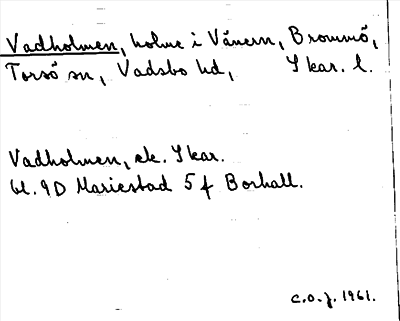 Vadholmen, holme i Vänern, Brommö,
Torsö sn, Vadsbo hd, Skar. l.
Vadholmen, ek. Skar.
bl. 9D Mariestad 5 f Borhall.
C.O.J. 1961.